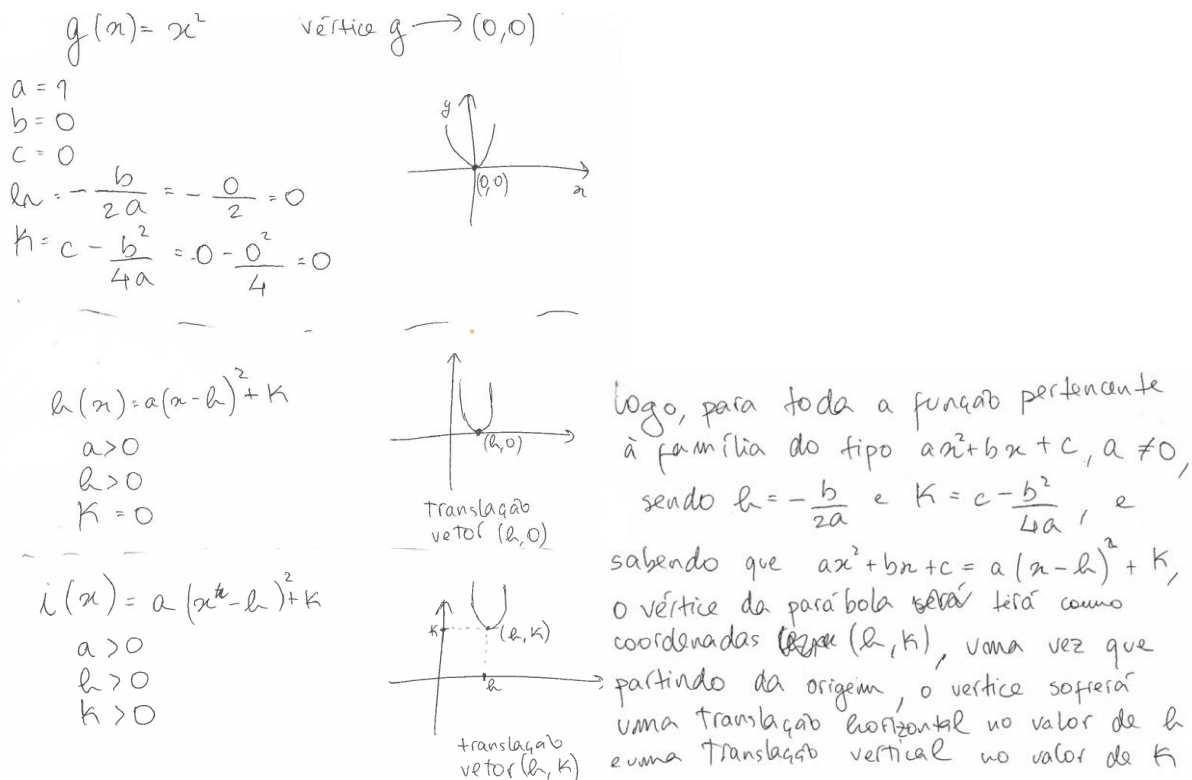 g(x) = x² vértice g → (0,0)
a = 1
b = 0
c = 0
h = - b/2a = - 0/2 = 0
K = c - b²/4a = 0 - 0²/4 = 0
y
(0,0)
x
h(x) = a(x-h)² + K
a>0
h>0
K = 0
(h,0)
translação
vetor (h,0)
i(x) = a(x-h)² + K
a>0
h>0
K>0
K
(h,K)
h
translação
vetor (h,K)
logo, para toda a função pertencente
à família do tipo ax²+bx+c, a ≠0,
sendo h = - b/2a e K = c - b²/4a, e
sabendo que ax²+bx+c = a(x-h)² + K,
o vértice da parábola será terá como
coordenadas (h,K), uma vez que
partindo da origem, o vertice sofrerá
uma translação horizontal no valor de h
e uma translação vertical no valor de K